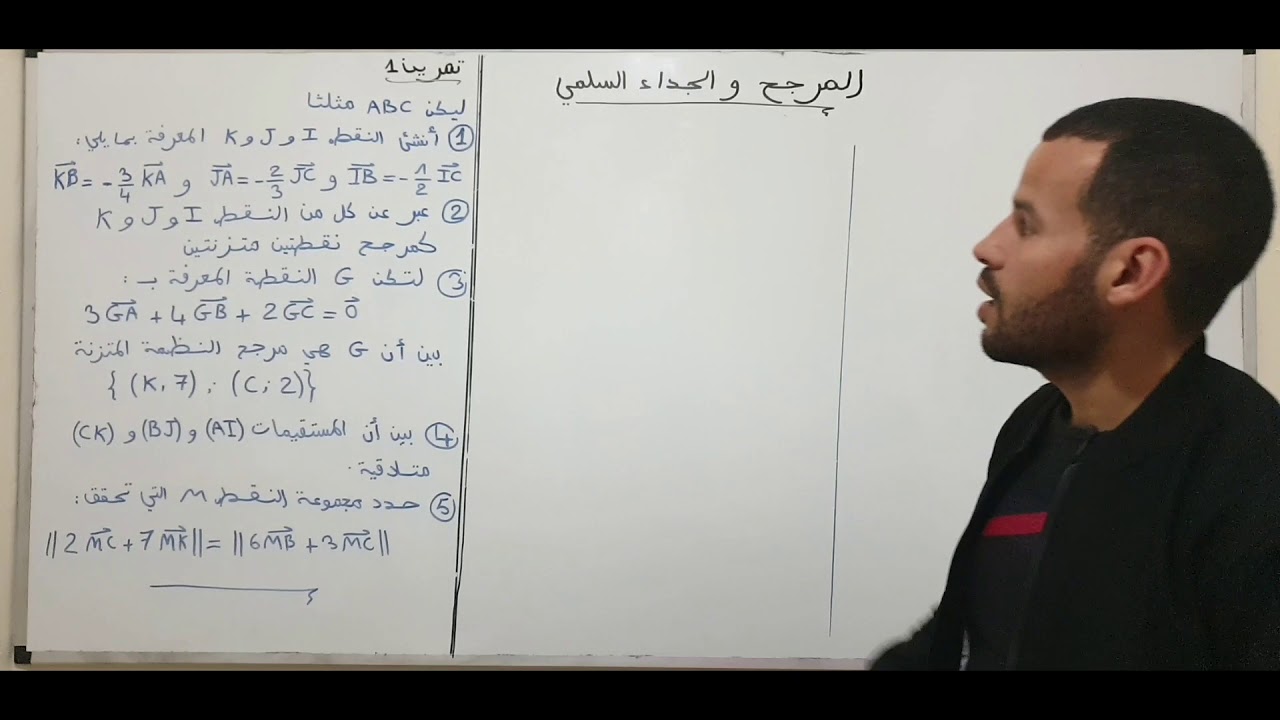 المرجح والجداء السلمي
تمرين1
ليكن ABC مثلثا
① أنشئ النقط I و J و K المعرفة بمايلي:
IB = -1/2 IC و JA = -2/3 JC و KB = -3/4 KA
② عبر عن كل من النقط I و J و K
كمرجح نقطتين متزنتين
③ لتكن G النقطة المعرفة بـ :
3GA + 4GB + 2GC = 0
بين أن G هي مرجح النظمة المتزنة
{ (K, 7) ; (C; 2)}
④ بين أن المستقيمات (AI) و (BJ) و (CK)
متلاقية.
⑤ حدد مجموعة النقط M التي تحقق:
||2MC + 7MK|| = ||6MB + 3MC||